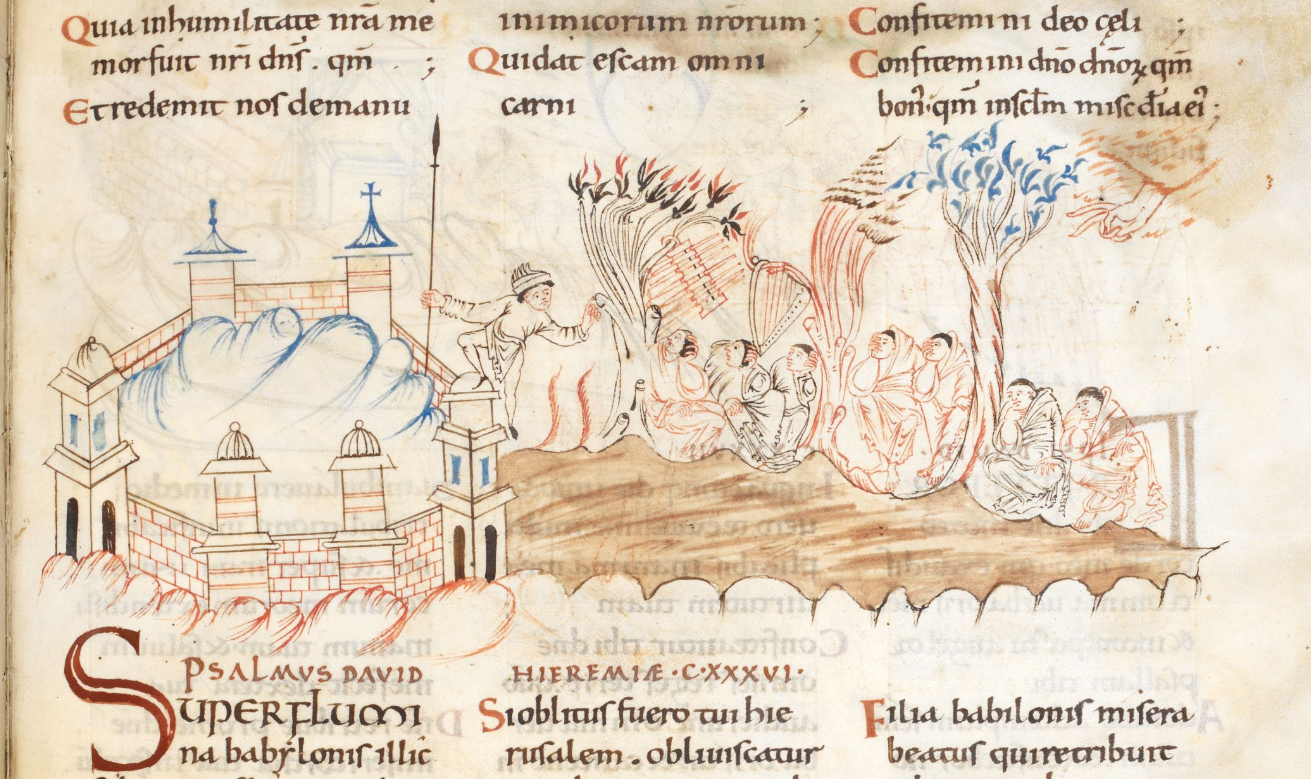 Quia inhumilitate nr̄a me
morfuit nr̄i dn̄s . qm̄ ;
Et redemit nos demanu
inimicorum nr̄orum ;
Qui dat escam omni
carni ;
Confitemini deo cęli ;
Confitemini dn̄o dn̄oꝝ qm̄
bon᷒ · qm̄ insc̄lm misc̄dia ei᷒ ;
PSALMVS DAVID HIEREMIÆ · CXXXVI ·
SUPERFLUMI
na babẏlonis illic
Si oblitus fuero tui hie
rusalem . obliuiscatur
Filia babilonis misera
beatus qui retribuit